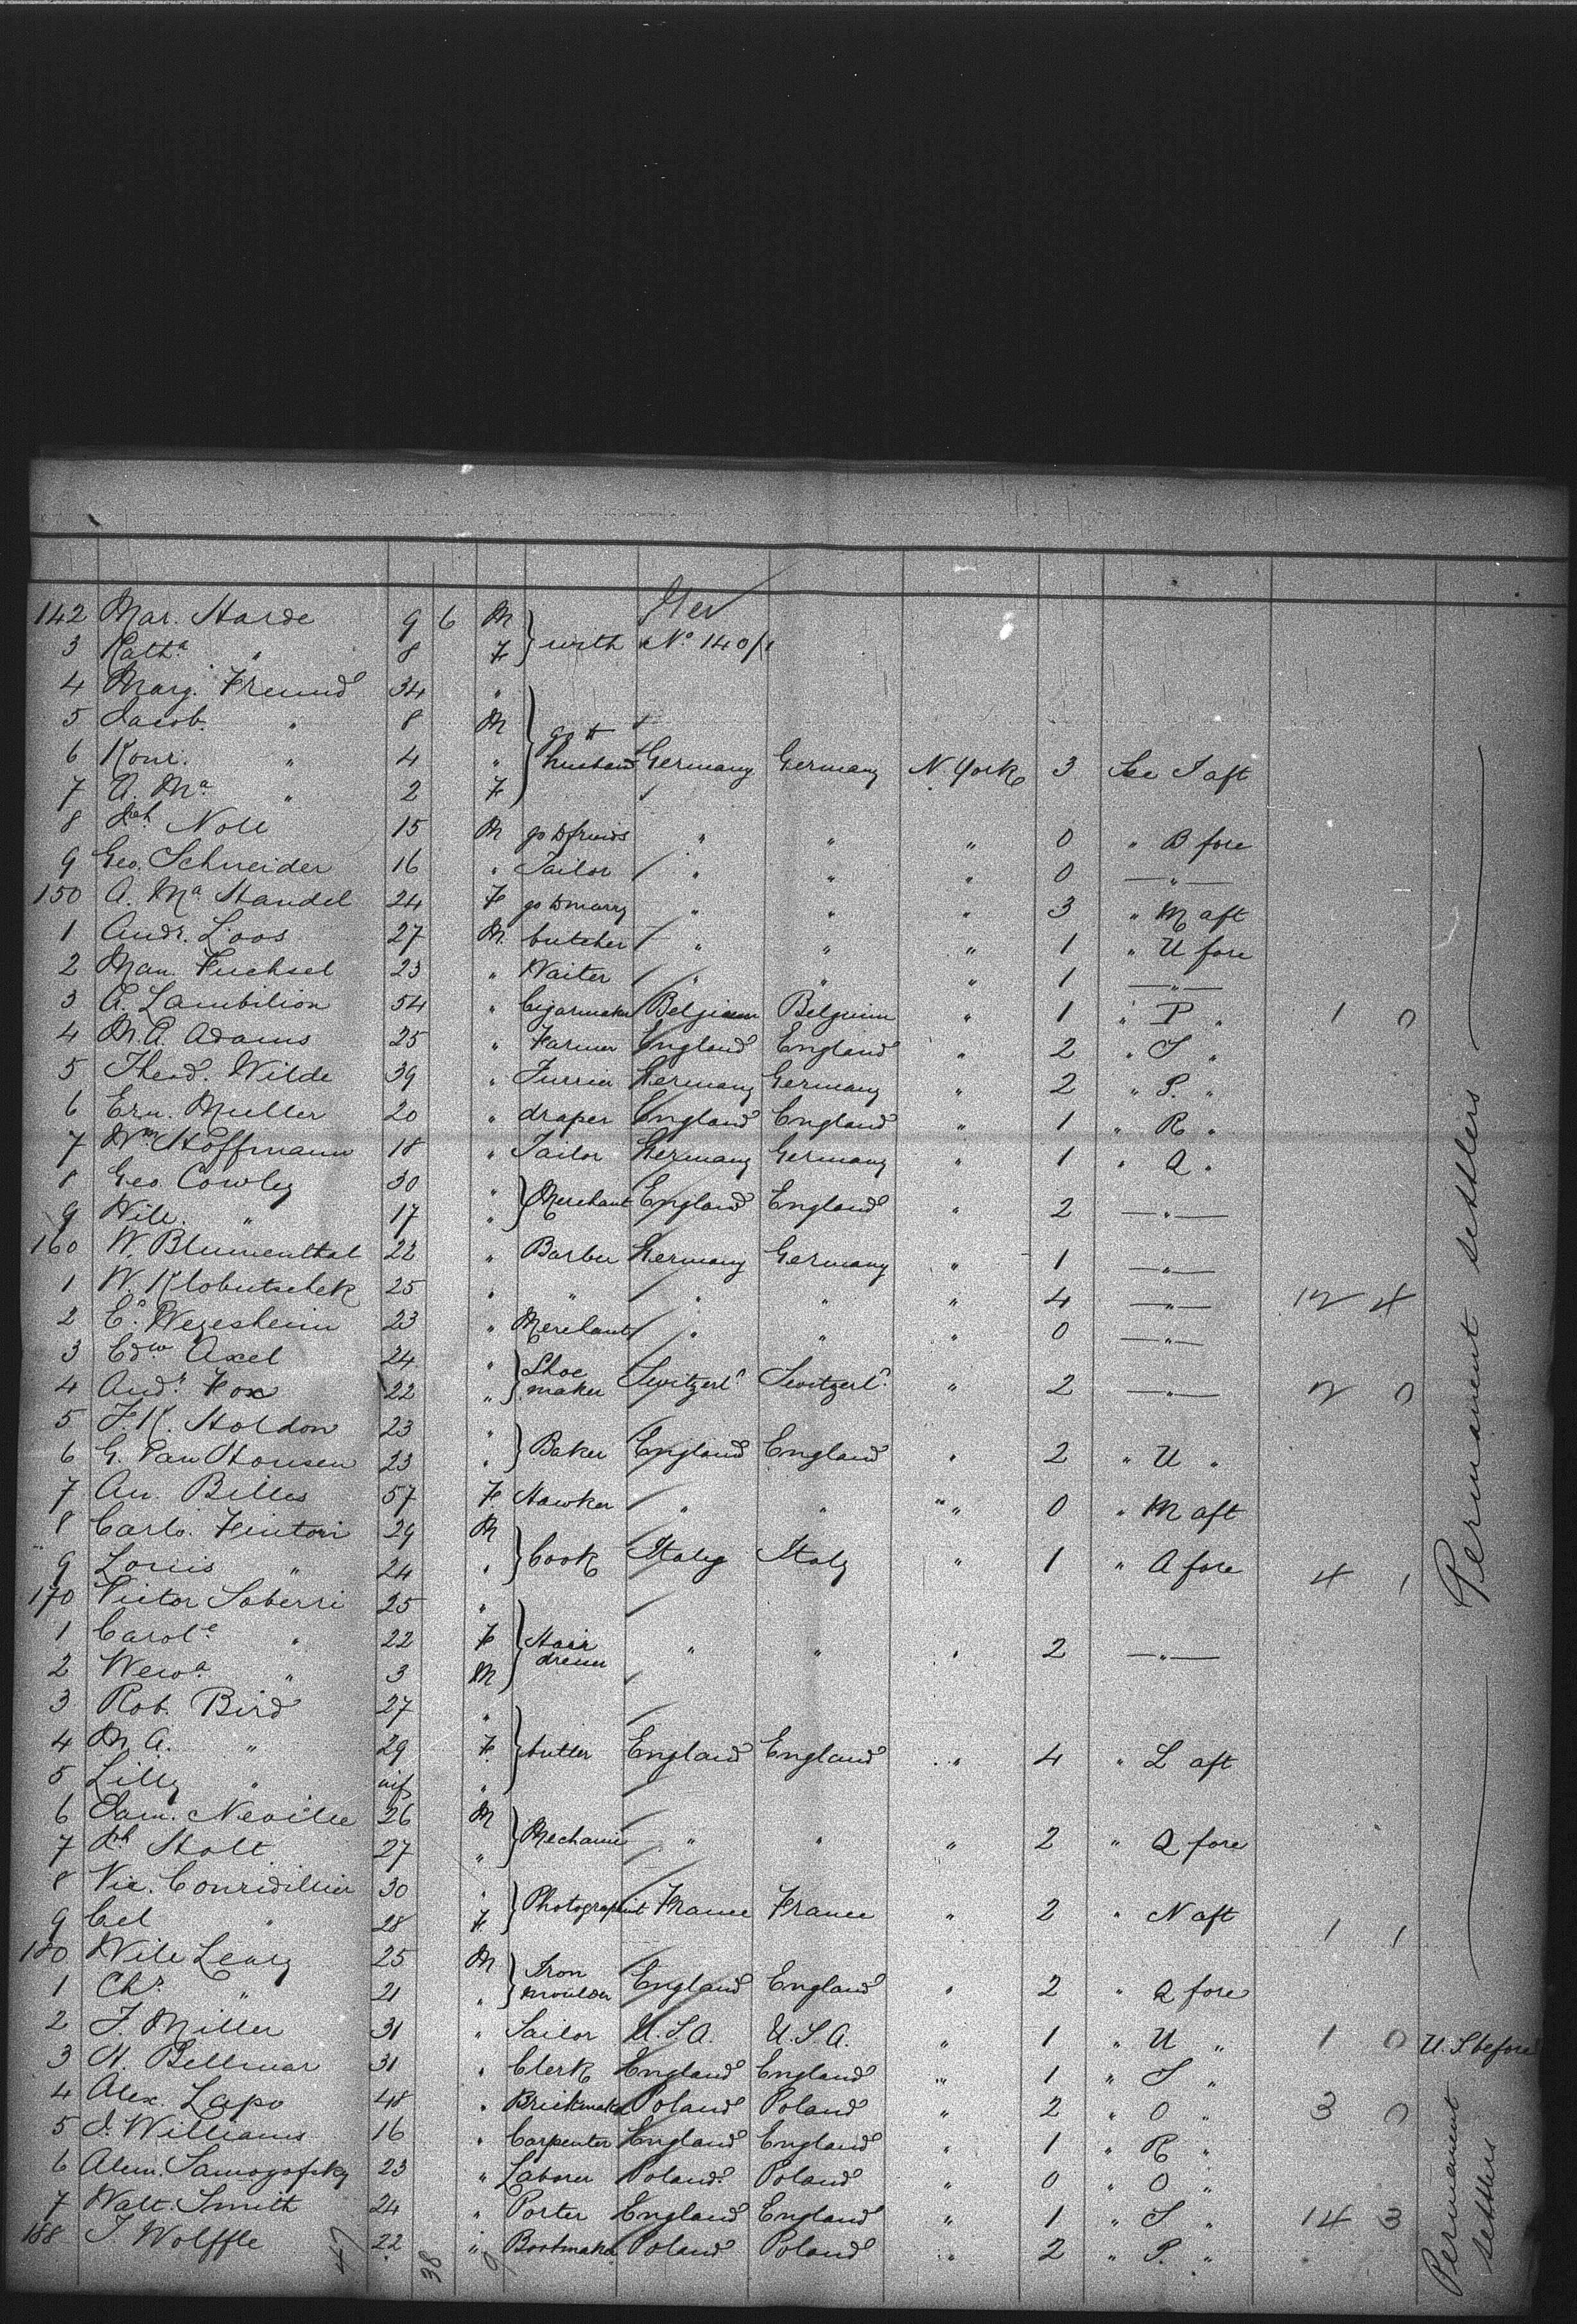 142 Mar. Harde 9 6 M } Ger
3 Kath.a " 8 F } with No 140/1
4 Marg. Freund 34 "
5 Jacob " 8 M } go to
6 Konr. " 4 " } husband Germany Germany N. York 3 See I aft
7 A. Ma " 2 F
8 Joh Noll 15 M go to friends " " " 0 " B fore
9 Geo. Schneider 16 " Tailor " " " 0 — " —
150 A. Ma Standel 24 F go to marry " " " 3 " M aft
1 Andr. Loos 27 M. butcher " " " 1 " U fore
2 Man. Fuchsel 23 " Waiter " " " 1 — " —
3 A. Lambilion 54 " Cigarmaker Belgium Belgium " 1 " P " 1 0
4 M. A. Adams 25 " Farmer England England " 2 " S "
5 Theod. Wilde 39 " Furrier Germany Germany " 2 " P. "
6 Ern. Muller 20 " draper England England " 1 " R "
7 Wm Hoffmann 18 " Tailor Germany Germany " 1 " Q "
8 Geo Cowley 30 "
9 Will. " 17 " } Merchant England England " 2 — " —
160 W. Blumenthal 22 " Barber Germany Germany " 1 — " —
1 W. Klobutschek 25 " " " " " 4 — " — 12 4
2 E. Wegesheim 23 " Merchant " " " 0 — " —
3 Edw Axel 24 " } Shoe
4 Andr. Fox 22 " } maker Switzerld Switzerld " 2 — " — 2 0
5 F. K. Holdon 23 "
6 G. Van Housen 23 " } Baker England England " 2 " U "
7 An. Billes 57 F Hawker " " " 0 " M aft
8 Carlo. Fintori 29 M
9 Louis " 24 " } Cook Italy Italy " 1 " Q fore 4 1
170 Victor Soberri 25 "
1 Carole " 22 F } Hair
2 " 3 M } dresser " " " 2 — " —
3 Rob. Bird 27 "
4 M. A. " 29 F } butler England England " 4 " L aft
5 Lilly " inf "
6 Sam. Neville 26 M
7 Joh Holt 27 " } Mechanic " " " 2 " Q fore
8 Vic. 30 "
9 Cel " 28 F } Photographist France France " 2 " N aft 1 1
180 Will Leary 25 M } Iron
1 Chr. " 21 " } moulder England England " 2 " Q fore
2 J. Miller 31 " Sailor U.S.A. U.S.A. " 1 " U " 1 0 U.S before
3 H. Bellmar 31 " Clerk England England " 1 " S "
4 Alex. Lapo 48 " Brickmaker Poland Poland " 2 " O " 3 0
5 J. Williams 16 " Carpenter England England " 1 " R "
6 23 " Laborer Poland Poland " 0 " O "
7 Walt. Smith 24 " Porter England England " 1 " S " 14 3
188 J. Wolffle 22 " Bootmaker Poland Poland " 2 " P. "
47 38 9
Permanent settlers
Permanent settlers